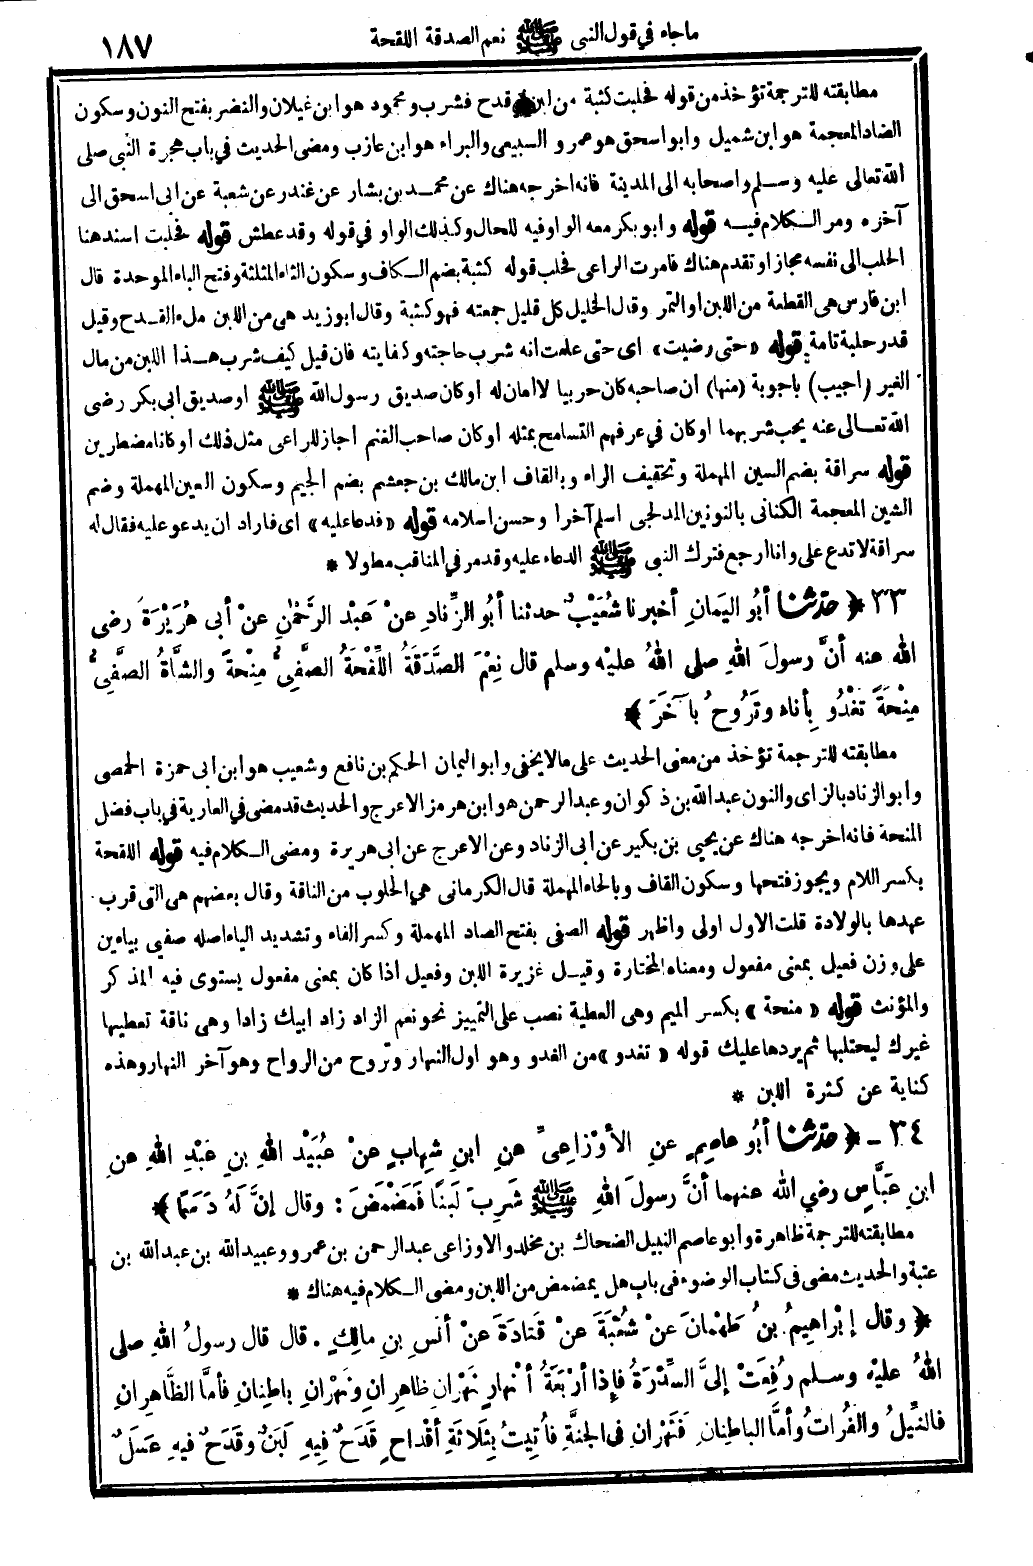 ماجاء في قول النبي ﷺ نعم الصدقة اللقحة ١٨٧
مطابقته للترجمة تؤخذ من قوله فحلبت كثبة من لبن في قدح فشرب ومحمود هو ابن غيلان والنضر بفتح النون وسكون
الضاد المعجمة هو ابن شميل وابو اسحق هو عمرو السبيعى والبراء هو ابن عازب ومضى الحديث في باب هجرة النبي صلى
الله تعالى عليه وسلم واصحابه الى المدينة فانه اخرجه هناك عن محمد بن بشار عن غندر عن شعبة عن ابى اسحق الى
آخره ومر الكلام فيه قوله وابو بكر معه الواو فيه للحال وكذلك الواو في قوله وقد عطش قوله فحلبت اسند هنا
الحلب الى نفسه مجازا وتقدم هناك فامرت الراعى فحلب قوله كثبة بضم الكاف وسكون الثاء المثلثة وفتح الباء الموحدة قال
ابن فارس هى القطعة من اللبن او التمر وقال الخليل كل قليل جمعته فهو كثبة وقال ابو زيد هى من اللبن ملء القدح وقيل
قدر حلبة تامة قوله «حتى رضيت» اى حتى علمت انه شرب حاجته وكفايته فان قيل كيف شرب هذا اللبن من مال
الغير (اجيب) باجوبة (منها) ان صاحبه كان حربيا لا امان له او كان صديق رسول الله ﷺ او صديق ابى بكر رضى
الله تعالى عنه يحب شربهما او كان في عرفهم التسامح بمثله او كان صاحب الغنم اجاز للراعى مثل ذلك او كانا مضطرين
قوله سراقة بضم السين المهملة وتخفيف الراء وبالقاف ابن مالك بن جعشم بضم الجيم وسكون العين المهملة وضم
الشين المعجمة الكنانى بالنونين المدلجى اسلم آخرا وحسن اسلامه قوله «فدعا عليه» اى فاراد ان يدعو عليه فقال له
سراقة لا تدع على وانا ارجع فترك النبى ﷺ الدعاء عليه وقد مر في المناقب مطولا *
٣٣ ﴿ حدثنا أبُو اليَمانِ أخبرنا شُعَيْبٌ حدثنا أبُو الزِّنادِ عنْ عَبْدِ الرَّحْمٰنِ عنْ أبى هُرَيْرَةَ رضى
الله عنه أنَّ رسولَ اللهِ صلى اللهُ عليْه وسلم قال نِعْمَ الصَّدَقَةُ اللِّقْحَةُ الصَّفِىُّ مِنْحَةً والشَّاةُ الصَّفِىُّ
مِنْحَةً تَغْدُو بِأناء وتَرُوحُ بآخَرَ ﴾
مطابقته للترجمة تؤخذ من معنى الحديث على مالا يخفى وابو اليمان الحكم بن نافع وشعيب هو ابن ابى حمزة الحمصى
وابو الزناد بالزاى والنون عبد الله بن ذكوان وعبد الرحمن هو ابن هرمز الاعرج والحديث قد مضى في العارية في باب فضل
المنحة فانه اخرجه هناك عن يحيى بن بكير عن ابى الزناد وعن الاعرج عن ابى هريرة ومضى الكلام فيه قوله اللقحة
بكسر اللام ويجوز فتحها وسكون القاف وبالحاء المهملة قال الكرمانى هي الحلوب من الناقة وقال بعضهم هى التى قرب
عهدها بالولادة قلت الاول اولى واظهر قوله الصفى بفتح الصاد المهملة وكسر الفاء وتشديد الياء اصله صفيى بياءين
على وزن فعيل بمعنى مفعول ومعناه المختارة وقيل غزيرة اللبن وفعيل اذا كان بمعنى مفعول يستوى فيه المذكر
والمؤنث قوله « منحة » بكسر الميم وهى العطية نصب على التمييز نحو نعم الزاد زاد ابيك زادا وهى ناقة تعطيها
غيرك ليحتلبها ثم يردها عليك قوله « تغدو » من الغدو وهو اول النهار وتروح من الرواح وهو آخر النهار وهذه
كناية عن كثرة اللبن *
٣٤ - ﴿ حدثنا أبُو عاصِمٍ عنِ الأوْزَاعِىِّ عنِ ابنِ شِهابٍ عنْ عُبَيْدِ اللهِ بنِ عَبْدِ اللهِ عنِ
ابنِ عَبَّاسٍ رضي الله عنهما أنَّ رسولَ اللهِ ﷺ شَرِبَ لَبَنًا فَمَضْمَضَ : وقال إنَّ لَهُ دَسَمًا ﴾
مطابقته للترجمة ظاهرة وابو عاصم النبيل الضحاك بن مخلد والاوزاعى عبد الرحمن بن عمرو وعبيد الله بن عبد الله بن
عتبة والحديث مضى فى كتاب الوضوء فى باب هل يمضمض من اللبن ومضى الكلام فيه هناك *
﴿ وقال إبْراهِيمُ بنُ طَهْمانَ عنْ شُعْبَةَ عنْ قَتادَةَ عنْ أنَسِ بنِ مالِكٍ . قال قال رسولُ اللهِ صلى
اللهُ عليْه وسلم رُفِعَتْ إلىَّ السِّدْرَةُ فإذا أرْبَعَةُ أنْهارٍ نَهْرانِ ظاهِرانِ ونَهْرانِ باطِنانِ فأمَّا الظَّاهِرانِ
فالنِّيلُ والفُراتُ وأمَّا الباطِنانِ فَنَهْرانِ فى الجنَّةِ فأُتِيتُ بِثَلاثَةِ أقْداحٍ قَدَحٌ فِيهِ لَبَنٌ وقَدَحٌ فيهِ عَسَلٌ